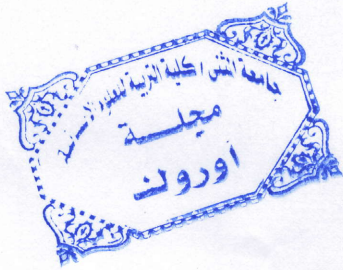 جامعة المثنى / كلية التربية للعلوم الإنسانية
مجلــــة
اوروك